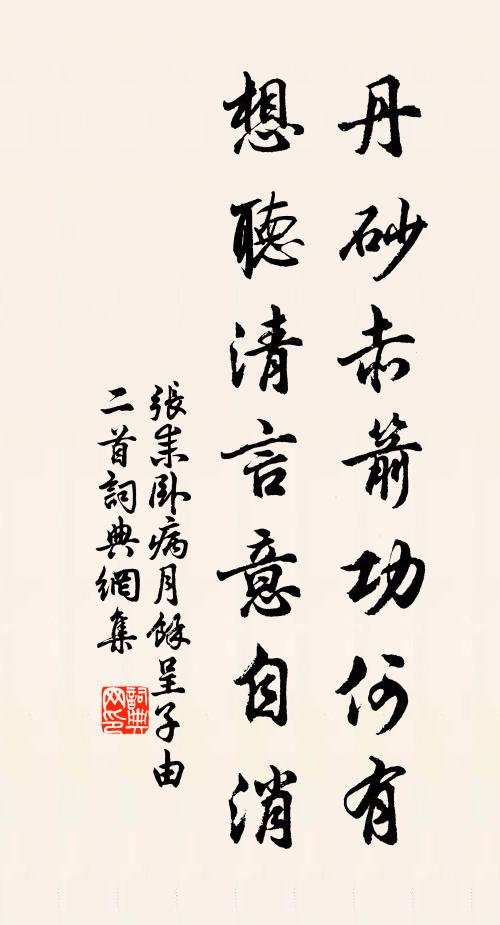 丹砂赤箭功何有
想聽清言意自消
張耒臥病月餘呈子由
二首詞典網集
詞典
网印